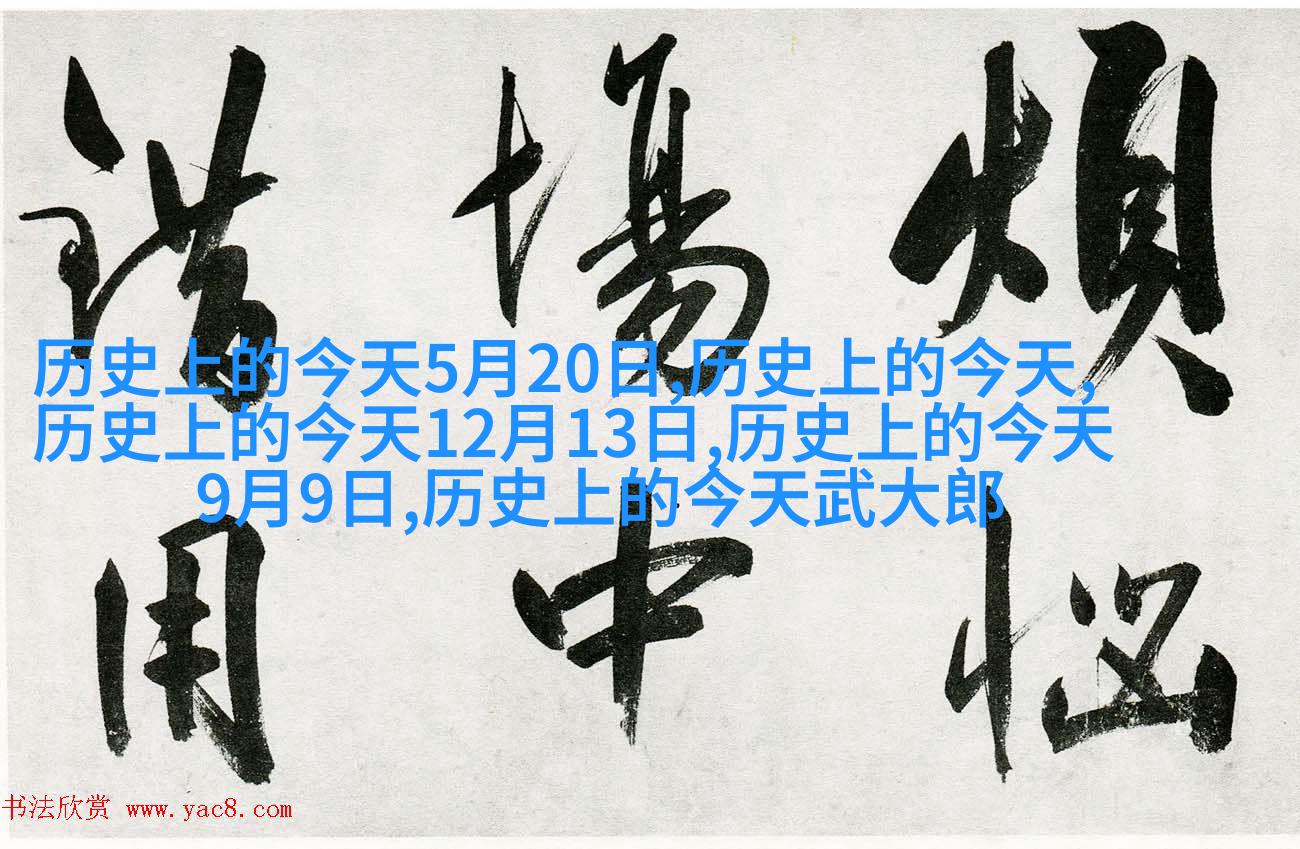 煩惱
場中
錯用
历史上的今天5月20日,历史上的今天,
历史上的今天12月13日,历史上的今天
9月9日,历史上的今天武大郎
书法欣赏 www.yac8.com